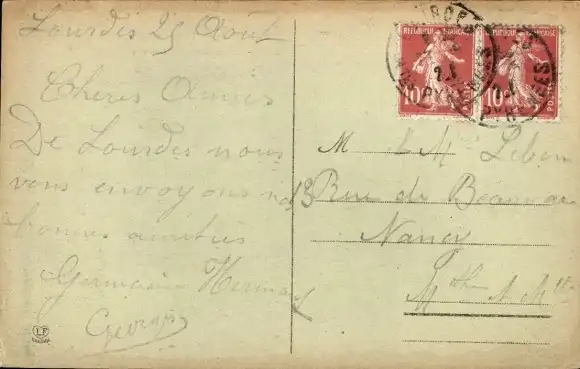 Lourdes 25 Août
Chères Amies
De Lourdes nous
vous envoyons nos
bonnes amitiés
Germaine
Georges
LF
REPUBLIQUE FRANÇAISE
10
POSTES
REPUBLIQUE FRANÇAISE
10
POSTES
PYRENEES
M & M Lebon
13 Rue de
Nancy
Mthe & Mlle